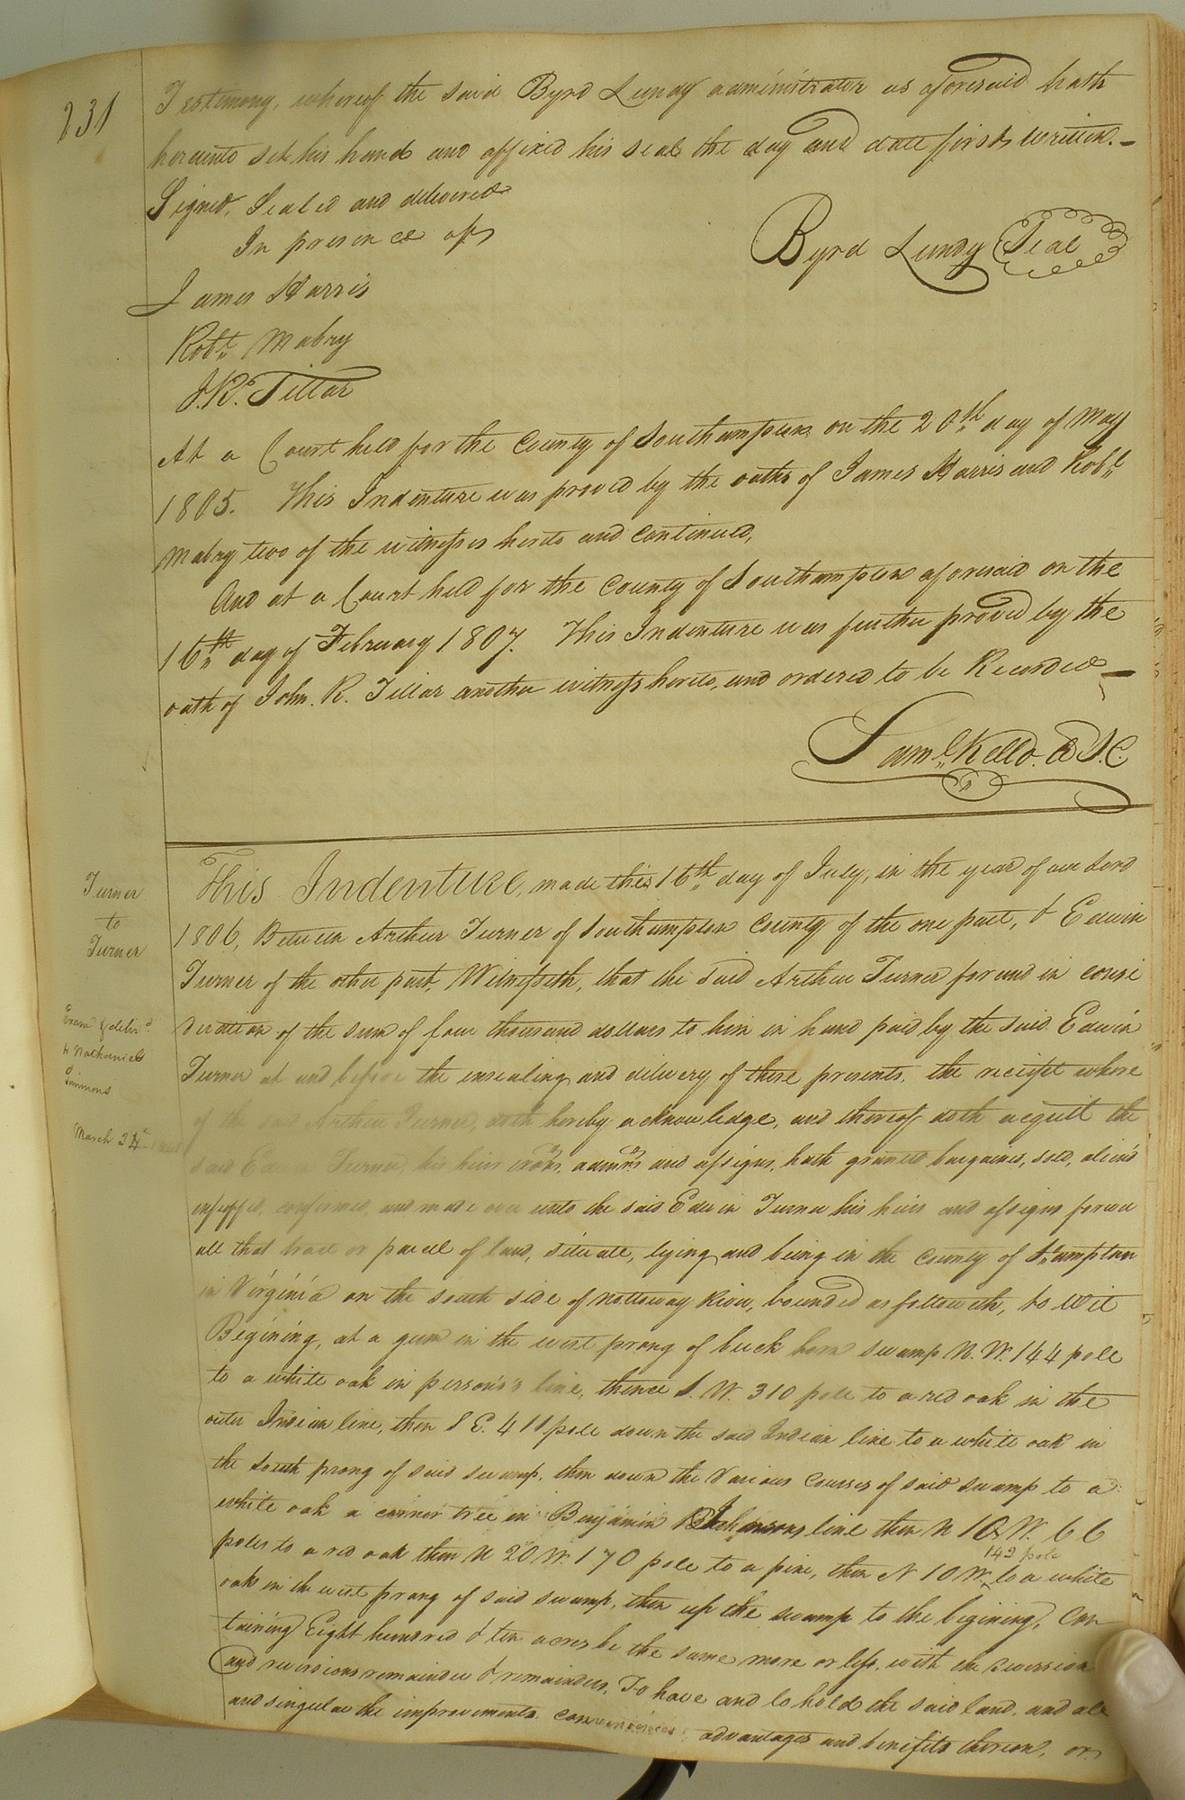 231
Testimony, whereof the said Byrd Lundy administrator as aforesaid hath
hereunto set his hand and affixed his seal the day and date first written.—
Signed, Sealed and delivered
In presence of
Byrd Lundy Seal
James Harris
Robt. Mabry
J. R. Tillar
At a Court held for the County of Southampton on the 20th day of May
1805. This Indenture was proved by the oaths of James Harris and Robt.
Mabry two of the witnesses hereto and continued,
And at a Court held for the County of Southampton aforesaid on the
16th day of February 1807. This Indenture was further proved by the
oath of John. R. Tillar another witness hereto, and ordered to be Recorded —
Saml. Kello. C S.C.
Turner
to
Turner
Examd & delivd
to Nathaniel
Simmons
March
This Indenture, made this 16th day of July, in the year of our Lord
1806, Between Arthur Turner of Southampton County of the one part, & Edwin
Turner of the other part, Witnesseth, that the said Arthur Turner for and in consi
deration of the sum of four thousand dollars to him in hand paid by the said Edwin
Turner at and before the ensealing and delivery of these presents, the receipt where
of the said Arthur Turner, doth hereby acknowledge, and thereof doth acquit the
said Edwin Turner, his heirs exors, admrs and assigns, hath granted bargained, sold, alien'd
enfeoffed, confirmed, and made over unto the said Edwin Turner his heirs and assigns forever
all that tract or parcel of land, situate, lying and being in the County of S.hampton
in Virginia on the south side of Nottoway River, bounded as followeth, to Wit
Begining, at a gum in the west prong of buck horn swamp N. W. 144 pole
to a white oak in person's line, thence S. W. 310 pole to a red oak in the
outer Indian line, then S E. 410 pole down the said Indian line to a white oak in
the South prong of said swamp, then down the Various Courses of said swamp to a
white oak a corner tree in Benjamin Johnsons line then N 10 W. 66
poles to a red oak then N 20 W. 170 pole to a pine, then N 10 W. 142 pole to a white
oak in the west prong of said swamp, then up the swamp to the begining, Con
taining Eight hundred & ten acres be the same more or less, with the reversion
and reversions remainder & remainders. To have and to hold the said land, and all
and singular the improvements conveniences, advantages and benefits thereon, or